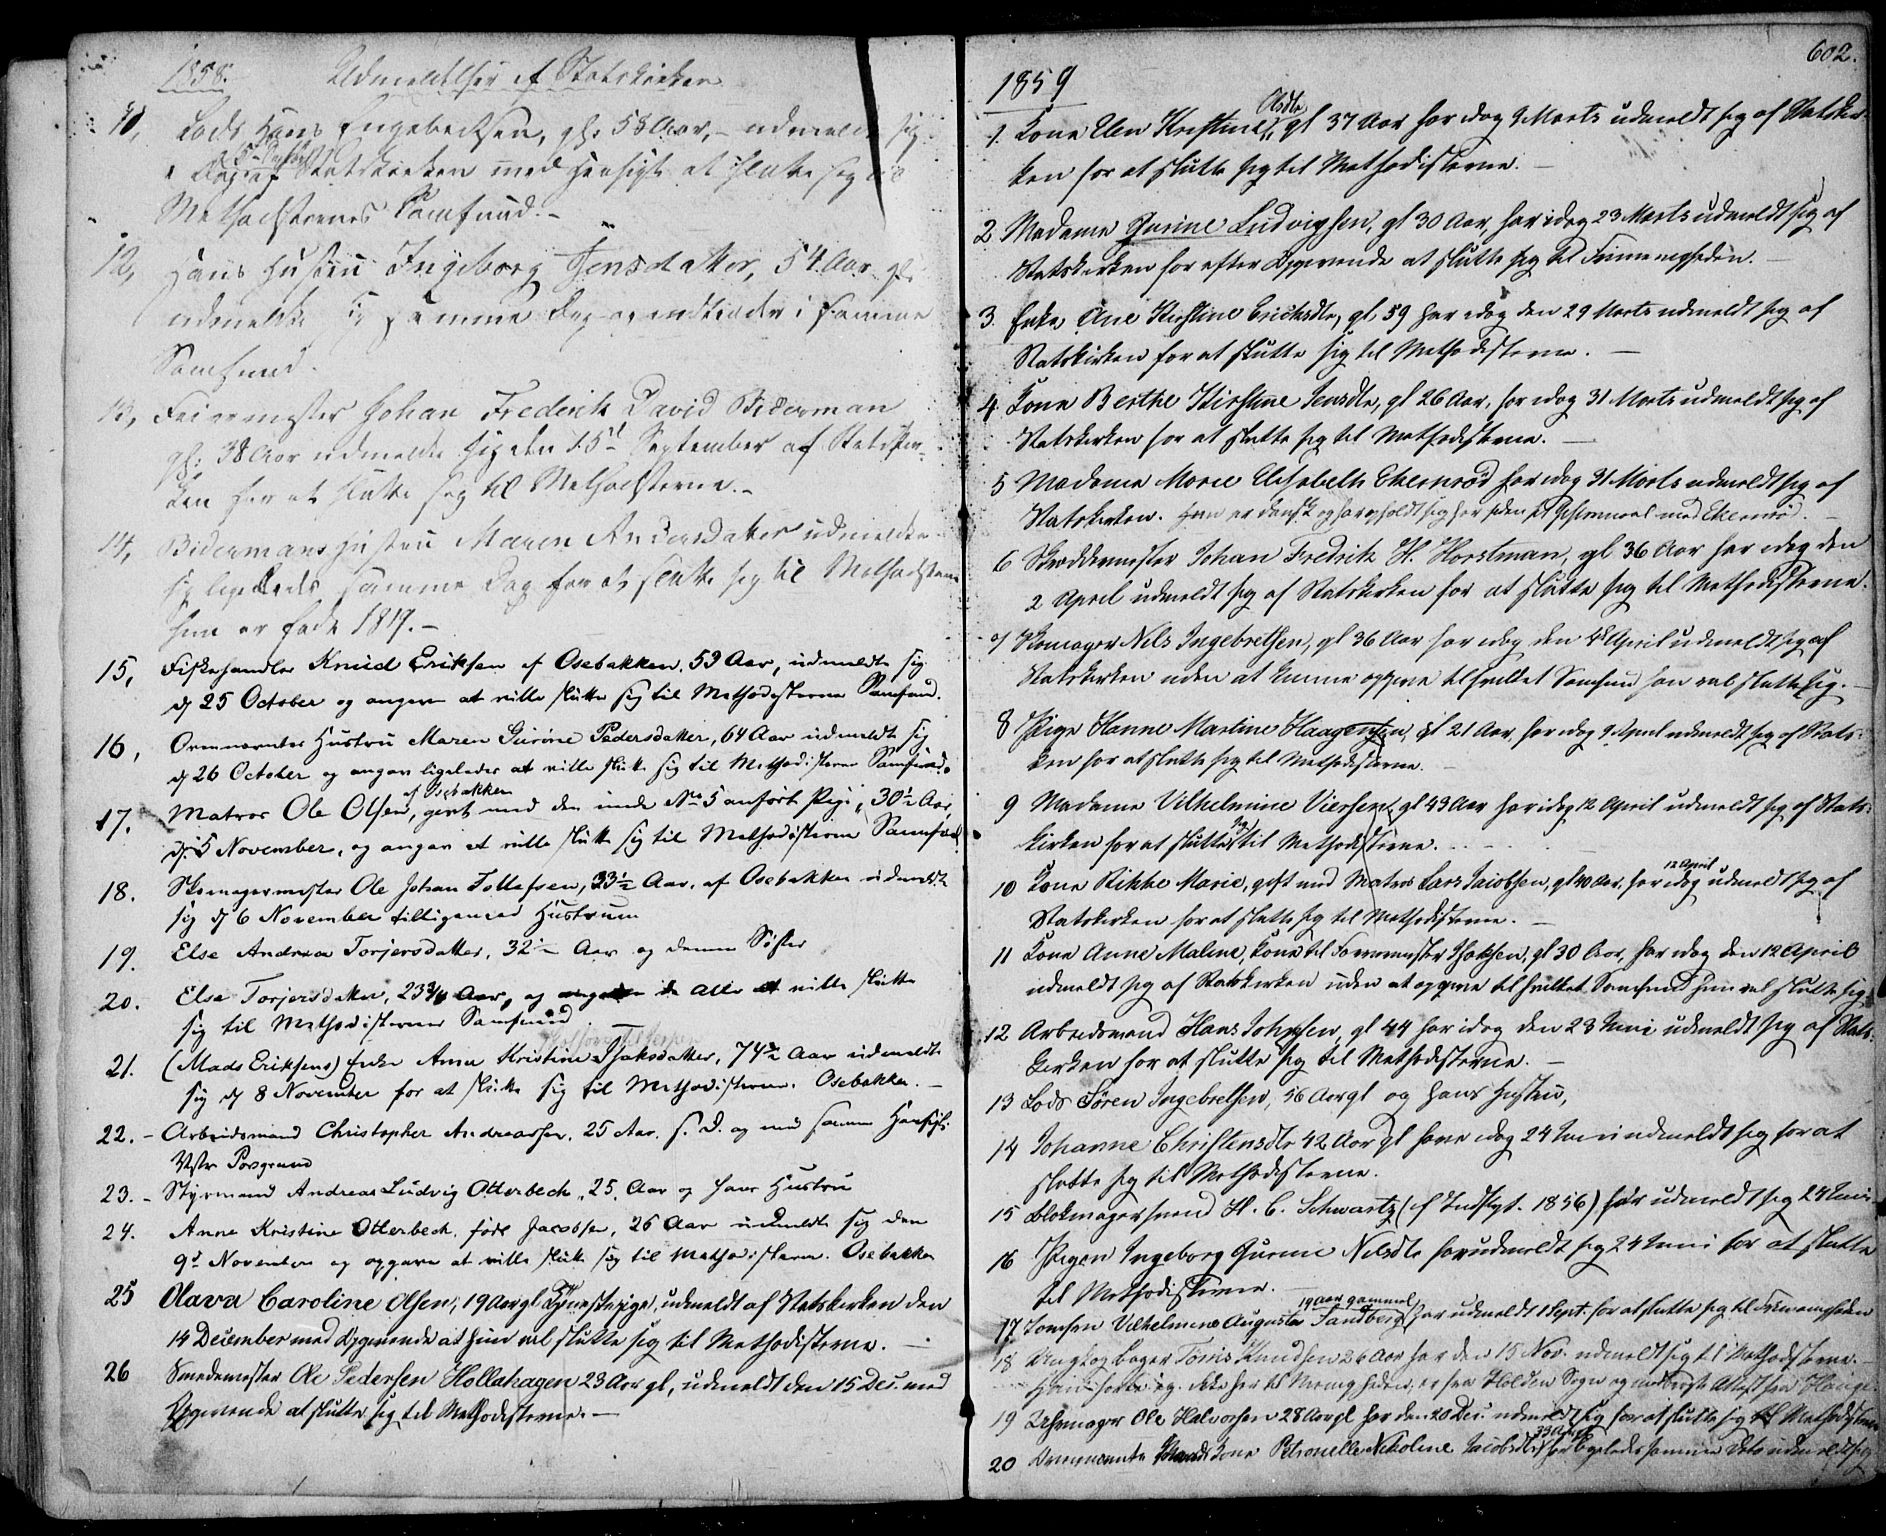 1858.
Udmeldelser af Statskirken
11, Lods Hans Engebretsen, gl: 58 Aar, – udmeldte sig
i Dag af Statskirken med Hensigt at slutte sig til
Methodisternes Samfund. –
12, Hans Hustru Ingeborg Jensdatter, 54 Aar gl:
udmeldte sig samme Dag og indtræder i samme
Samfund.
13, Feiermester Johan Frederik David Biderman
gl: 38 Aar udmeldte sig den 15d September af Statskir-
ken for at slutte sig til Methodisterne. –
14, Bidermans Hustru Maren Andersdatter udmeldte
sig ligeledes samme Dag for at slutte sig til Methodisterne
hun er født 1819. –
15, Fiskehandler Knud Eriksen af Osebakken, 59 Aar, udmeldte sig
d 25 October og angav at ville slutte sig til Methodisternes Samfund.
16, Ovennævntes Hustru Maren Gurine Pedersdatter, 64 Aar udmeldte sig
d 26 October og angav ligeledes at ville slutte sig til Methodisternes Samfund.
af Osebakken
17. Matros Ole Olsen, givt med den under No 5 anførte Pige, 30½ Aar,
d: 5 November, og angav at ville slutte sig til Methodisternes Samfund
18. Skomagermester Ole Johan Tollefsen, 33½ Aar, af Osebakken udmeldte
sig d 6 November tilligemed Hustruen
19. Else Andrea Torjersdatter, 32½ Aar og dennes Søster
20. Else Torjersdatter, 23¾ Aar, og alle at ville slutte
sig til Methodisternes Samfund
21. (Mads Eriksens) Enke Anne Kristine Isaksdatter, 74½ Aar udmeldte
sig d 8 November for at slutte sig til Methodisterne. Osebakken. –
22. – Arbeidsmand Christopher Andreassen, 25 Aar. s. D. og med samme Hensigt.
Vstr Porsgrund
23. – Styrmand Andreas Ludvig Otterbech, 25 Aar og hans Hustru
24. Anne Kristine Otterbech, født Jacobsen, 26 Aar udmeldte sig den
9d November og opgave at ville slutte sig til Methodisterne. Osebakken
25 Olava Caroline Olsen, 19 Aar gl Tjenestepige, udmeldt af Statskirken den
14 December med Opgivende at hun vil slutte sig til Methodisterne. –
26 Smedemester Ole Pedersen Hollahagen 23 Aar gl, udmeldt den 15 Dec. med
Opgivende at slutte sig til Methodisterne. –
602.
1859
1. Kone Elen Kirstine Olsdtr, gl 37 Aar har idag 9 Marts udmeldt sig af Statskir-
ken for at slutte sig til Methodisterne. –
2 Madame Gurine Ludvigsen, gl 30 Aar, har idag 23 Marts udmeldt sig af
Statskirken for efter Opgivende at slutte sig til Frimenigheden. –
3. Enke Ane Kirstine Ericksdtr, gl 59 har idag den 29 Marts udmeldt sig af
Statskirken for at slutte sig til Methodisterne. –
4 Kone Berthe Kirstine Jensdtr, gl 26 Aar, har idag 31 Marts udmeldt sig af
Statskirken for at slutte sig til Methodisterne. –
5 Madame Marie Elisabeth Ekernrød har idag 31 Marts udmeldt sig af
Statskirken. Hun er dansk og har opholdt sig her siden sit Giftermaal med Ekernrød. –
6 Skræddermester Johan Fredrik H. Horstman, gl 36 Aar har idag den
2 April udmeldt sig af Statskirken for at slutte sig til Methodisterne.
7 Skomager Nils Ingebretsen, gl 36 Aar har idag den 4de April udmeldt sig af
Statskirken uden at kunne opgive til hvilket Samfund han vil slutte sig. –
8 Pige Hanne Martine Haagensen, gl 21 Aar, har idag 9 April udmeldt sig af Statskir-
ken for at slutte sig til Methodisterne.
9 Madame Vilhelmine Viersen, gl 43 Aar har idag 12 April udmeldt sig af Stats-
kirken for at slutte sig til Methodisterne.
10 Kone Rikke Marie, gift med Matros Lars Jacobsen, gl 40 Aar, har idag 12 April udmeldt sig af
Statskirken for at slutte sig til Methodisterne. –
11 Kone Anne Maline, Kone til Isaksen, gl 30 Aar, har idag den 12 April
udmeldt sig af Statskirken uden at opgive til hvilket Samfund hun vil slutte sig.
12 Arbeidsmand Hans Johnsen, gl 44 har idag den 23 Juni udmeldt sig af Stats-
kirken for at slutte sig til Methodisterne. –
13 Lods Søren Ingebretsen, 56 Aar gl og hans Hustru,
14 Johanne Christensdtr 42 Aar gl have idag 24 Juni udmeldt sig for at
slutte sig til Methodisterne.
15 Blokmagersvend H. C. Schwartz (cf Indlgt. 1856) har udmeldt sig 24 Juni
16 Pigen Ingeborg Gurine Nilsdtr har udmeldt sig 24 Juni for at slutte
til Methodisterne.
19 Aar gammel
17 Jomfru Vilhelmine Augusta Sandberg, har udmeldt 1 Sept. for at slutte sig til Frimenigheden
18 Tønis Knudsen 26 Aar har den 15 Nov. udmeldt sig til Methodisterne. –
Han hører eg. ikke her til Menigheden, er fra Holden Sogn og
19 Uhrmager Ole Halvorsen 28 Aar gl har den 20 Dec. udmeldt sig for at slutte sig til Methodisterne
20 Ovennævnte Kone Petronelle Nikoline Jacobsdtr, 33 Aar, har ligeledes samme Dato udmeldt sig